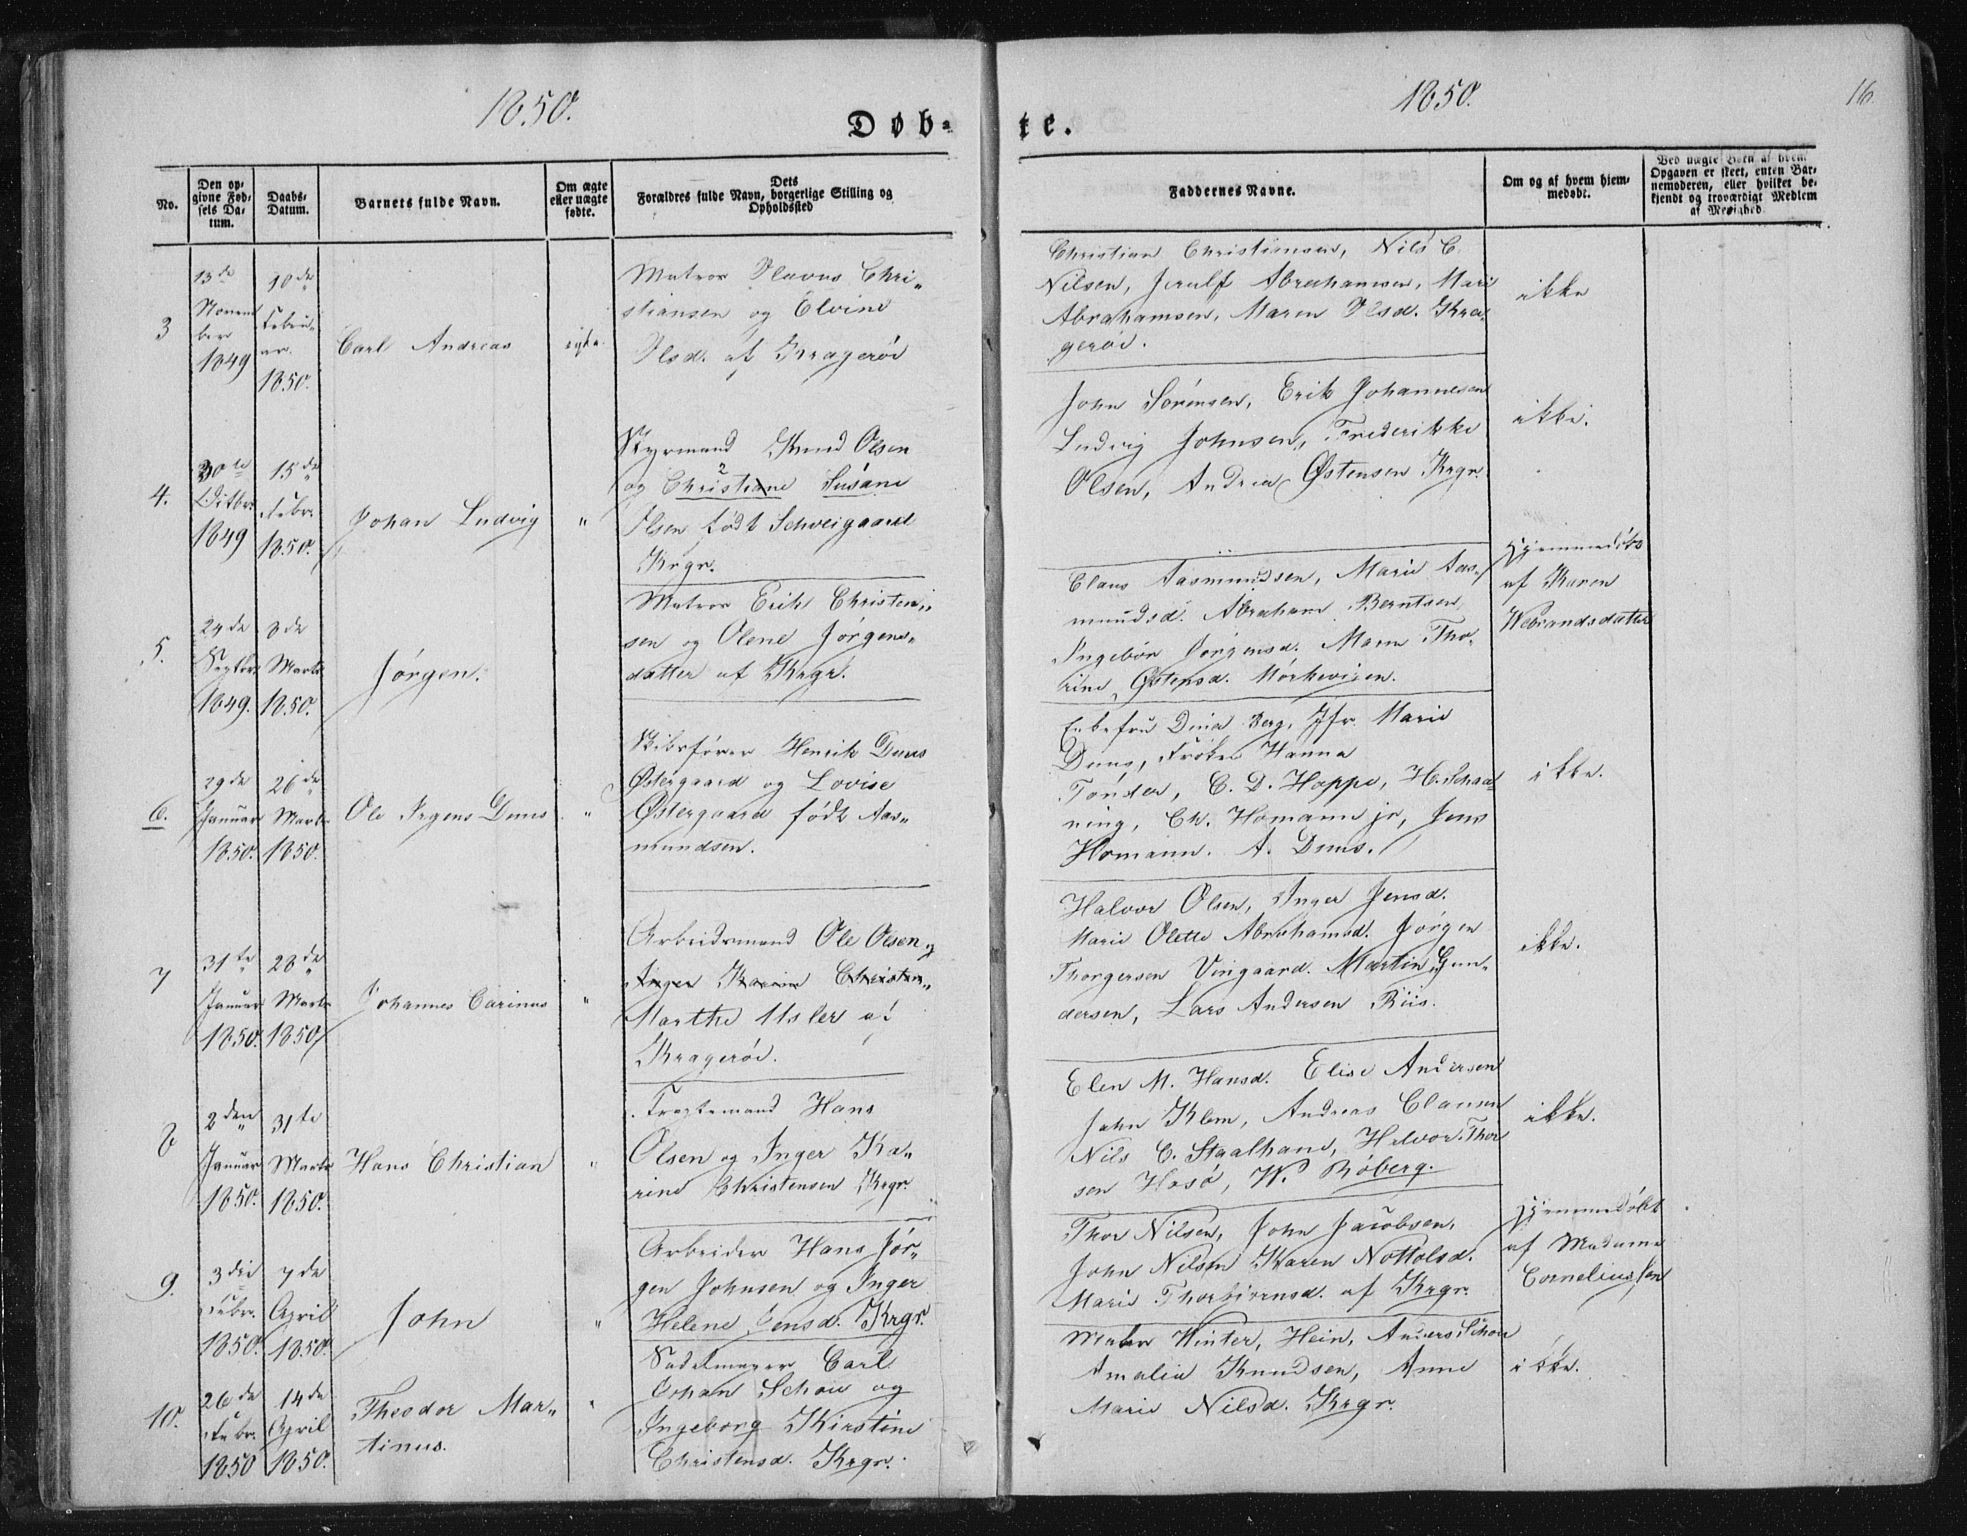 1850.
Døb-
te.
1850.
16.
No.
Den op-
givne Fød-
sels Da-
tum.
Daabs-
Datum.
Barnets fulde Navn.
Om ægte
eller uægte
fødte.
Dets
Forældres fulde Navn, borgerlige Stilling og
Opholdssted
Faddernes Navne.
Om og af hvem hjem-
medøbt.
Ved uægte Børn af hvem
Opgaven er skeet, enten Bar-
nemoderen, eller hvilket be-
kjendt og troværdigt Medlem
af Menighed.
3
13de
Novem
ber
1849
10de
Febru-
ar.
1850.
Carl Andreas
ægte.
Matros Olavus Chri-
stiansen og Elvine
Olsd. af Kragerøe
Christian Christiansen, Nils C.
Nilsen, Abrahamsen, Mari
Abrahamsen, Maren Olsd. Kra-
gerøe.
ikke
4.
30te
Octbr.
1849
15de
Febr.
1850.
Johan Ludvig
"
Styrmand Knud Olsen
og Christiane Susane
Olsen født Schweigaard
Krgr.
John Sørensen, Erik Johannesen
Ludvig Johnsen, Frederikke
Olsen, Andrea Østensen Krgr.
ikke.
5.
24de
Septbr.
1849.
3de
Marts
1850.
Jørgen.
Matros Erik Christen-
sen og Olene Jørgens-
datter af Krgr.
Claus Aasmundsen, Marie Aas-
mundsd. Abraham Berntsen,
Ingebor Jørgensd. Maren Tho-
rine Østensd. Mørkevigen.
Hjemmedøbt
af Karen
Webrandsdatter
6.
29de
Januar
1850.
26de
Marts
1850.
Ole Irgens Duus
"
Skibsfører Henrik Duus
Østergaard og Lovise
Østergaard født Aas-
mundsen.
Enkefru Dina Berg, Jfr. Marie
Duus, Frøken Hanna
Tønder, C. D. Hoppe, H. Schaa-
ning, Ch. Homann jr, Jens
Homann. A. Duus.
ikke.
7
31te
Januar
1850.
28de
Marts
1850
Johannes Carinus
"
Arbeidsmand Ole Olsen og
Inger Karine Christen-
Marthe Usler af
Kragerøe.
Halvor Olsen, Inger Jensd.
Marie Olette Abrahamsd. Jørgen
Thorgersen Vingaard. Martin Gun-
dersen, Lars Andersen Riis.
ikke.
8
2den
Januar
1850.
31te
Marts
1850.
Hans Christian
"
Fragtemand Hans
Olsen og Inger Ka-
rine Christensen Krgr.
Elen M. Hansd. Elise Andersen
John Klem, Andreas Clausen
Nils C. Staalhane, Halvor Thor
sen Hasø, W. Røberg.
ikke.
9.
3die
Febr.
1850.
7de
April
1850.
John
"
Arbeider Hans Jør-
gen Johnsen og Inger
Helene Jensd. Krgr.
Thor Nilsen, John Jacobsen,
John Nilsen Karen Nottolsd.
Marie Thorbiørnsd. af Krgr.
Hjemmedøbt
af Madame
Corneliussen
10.
26de
Febr.
1850
14de
April
1850.
Theodor Mar-
tinus.
"
Sadelmager Carl
Johan Schou og
Ingeborg Kirstine
Christensd. Krgr.
Winter, Hein, Anders Schou
Amalia Knudsen, Anne
Marie Nilsd. Krgr.
ikke.